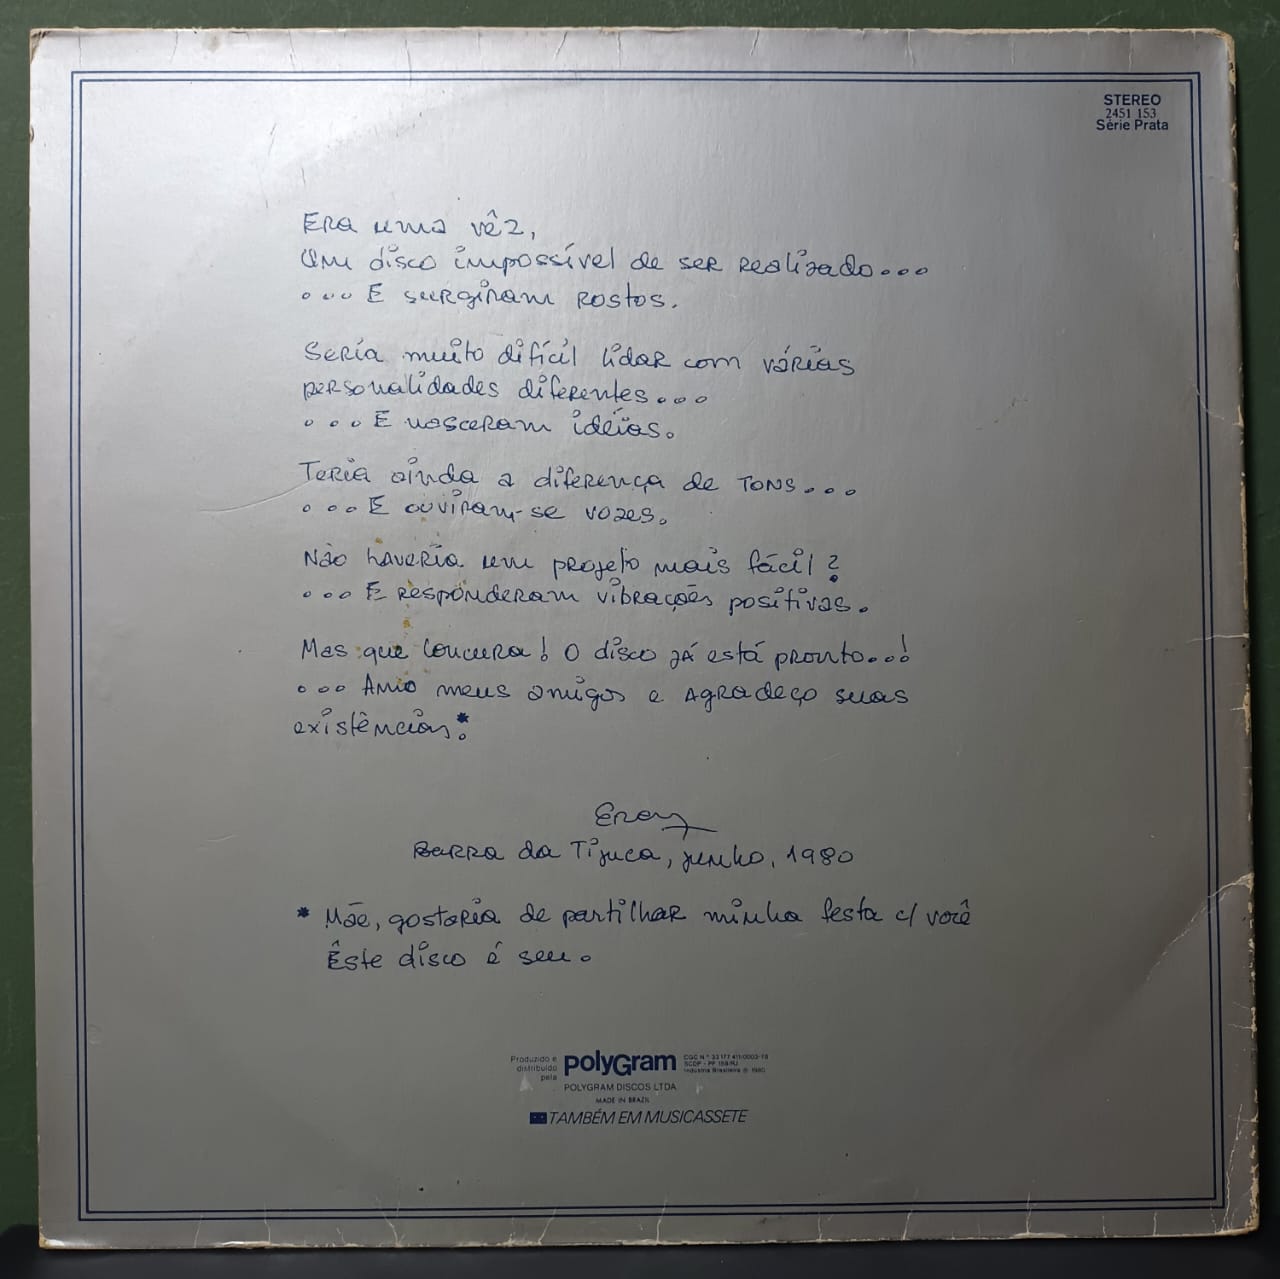 STEREO
2451 153
Série Prata
Era uma vêz,
Um disco impossível de ser realizado...
... E surgiram rostos.
Seria muito difícil lidar com várias
personalidades diferentes...
... E nasceram idéias.
Teria ainda a diferença de TONS...
... E ouviram-se vozes.
Não haveria um projeto mais fácil?
... E responderam vibrações positivas.
Mas que loucura! O disco já está pronto...!
... Amo meus amigos e agradeço suas
existências.*
Barra da Tijuca, junho, 1980
* Mãe, gostaria de partilhar minha festa c/ você
Êste disco é seu.
Produzido e
distribuído
pela
polyGram
CGC Nº 33 177 411/0003-78
SCDP - PF 158/RJ
Indústria Brasileira ℗ 1980
POLYGRAM DISCOS LTDA
MADE IN BRAZIL
TAMBÉM EM MUSICASSETE